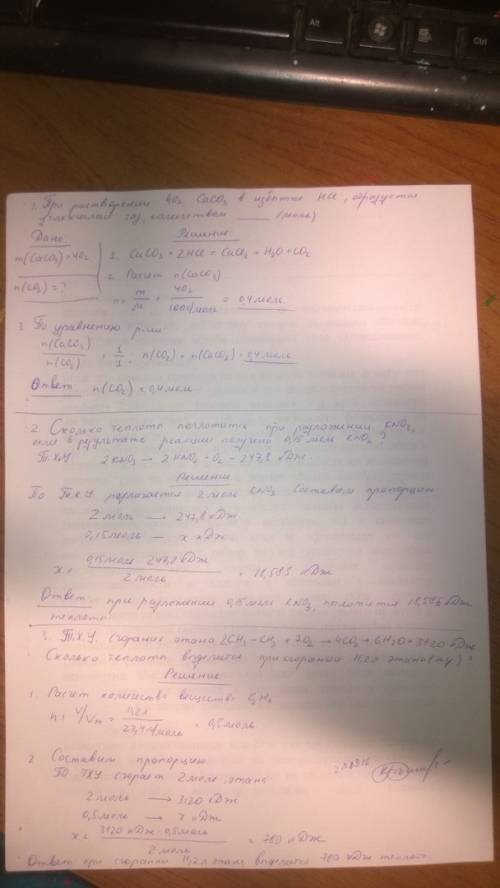 Alt
Ctrl
1. При растворении 40г CaCO3 в избытке HCl, образуется
углекислый газ, количеством ____ (моль)
Дано: Решение:
m(CaCO3)=40г 1. CaCO3 + 2HCl = CaCl2 + H2O + CO2
n(CO2) = ? 2. Расчет n(CaCO3)
n = m/M = 40г / 100г/моль = 0,4 моль
3. По уравнению р-ции:
n(CaCO3)/n(CO2) = 1/1 n(CO2) = n(CaCO3) = 0,4 моль
Ответ: n(CO2) = 0,4 моль
2. Сколько теплоты поглотится при разложении KNO3,
если в результате реакции получено 0,15 моль KNO2?
Т.Х.У. 2KNO3 → 2KNO2 + O2 - 247,8 кДж
Решение
По Т.Х.У. разлагается 2 моль KNO3 Составим пропорцию
2 моль → 247,8 кДж
0,15 моль — x кДж
x = 0,15 моль · 247,8 кДж / 2 моль = 18,585 кДж
Ответ: при разложении 0,15 моль KNO3, поглотится 18,585 кДж
теплоты
3. Т.Х.У. сгорания этана: 2CH3-CH3 + 7O2 → 4CO2 + 6H2O + 3120 кДж
Сколько теплоты выделяется при сгорании 11,2л этана (н.у.)?
Решение
1. Расчет количества вещества C2H6
n = V/Vm = 11,2л / 22,4л/моль = 0,5 моль.
2. Составим пропорцию
По ТХУ сгорает 2 моль этана
2 моль → 3120 кДж
0,5 моль → x кДж
x = 3120 кДж · 0,5 моль / 2 моль = 780 кДж
Ответ: при сгорании 11,2л этана выделяется 780 кДж теплоты